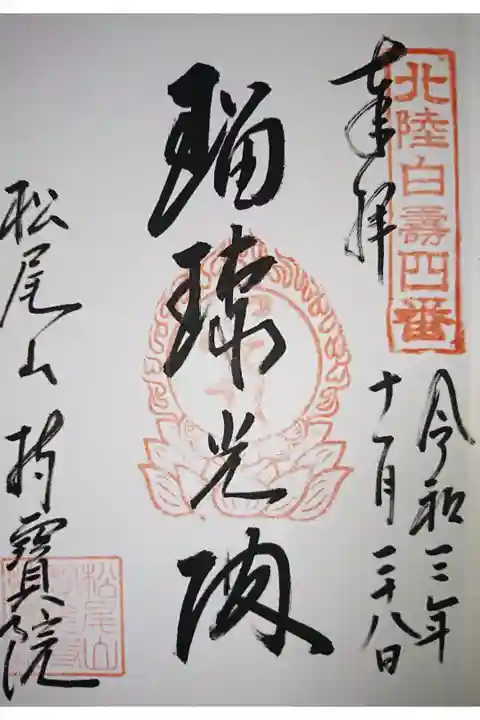 北陸白壽四番
奉拝
令和三年
十一月二十八日
瑠璃光殿
松尾山 持寶院
松尾山